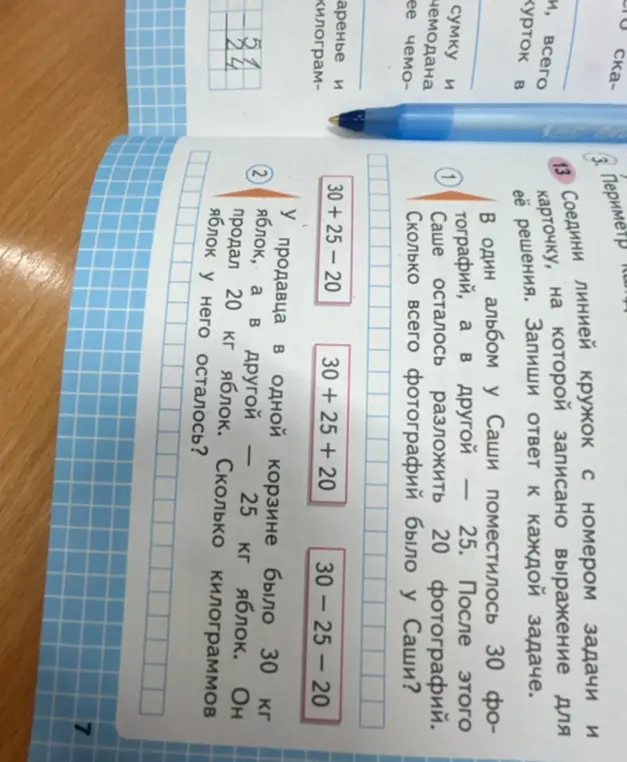 его ска-
и, всего
курток в
сумку и
чемодана
ее чемо-
аренье и
килограм-
51
24
3. Периметр
13 Соедини линией кружок с номером задачи и
карточку, на которой записано выражение для
её решения. Запиши ответ к каждой задаче.
1 В один альбом у Саши поместилось 30 фо-
тографий, а в другой — 25. После этого
Саше осталось разложить 20 фотографий.
Сколько всего фотографий было у Саши?
30 + 25 − 20 30 + 25 + 20 30 − 25 − 20
2 У продавца в одной корзине было 30 кг
яблок, а в другой — 25 кг яблок. Он
продал 20 кг яблок. Сколько килограммов
яблок у него осталось?
7